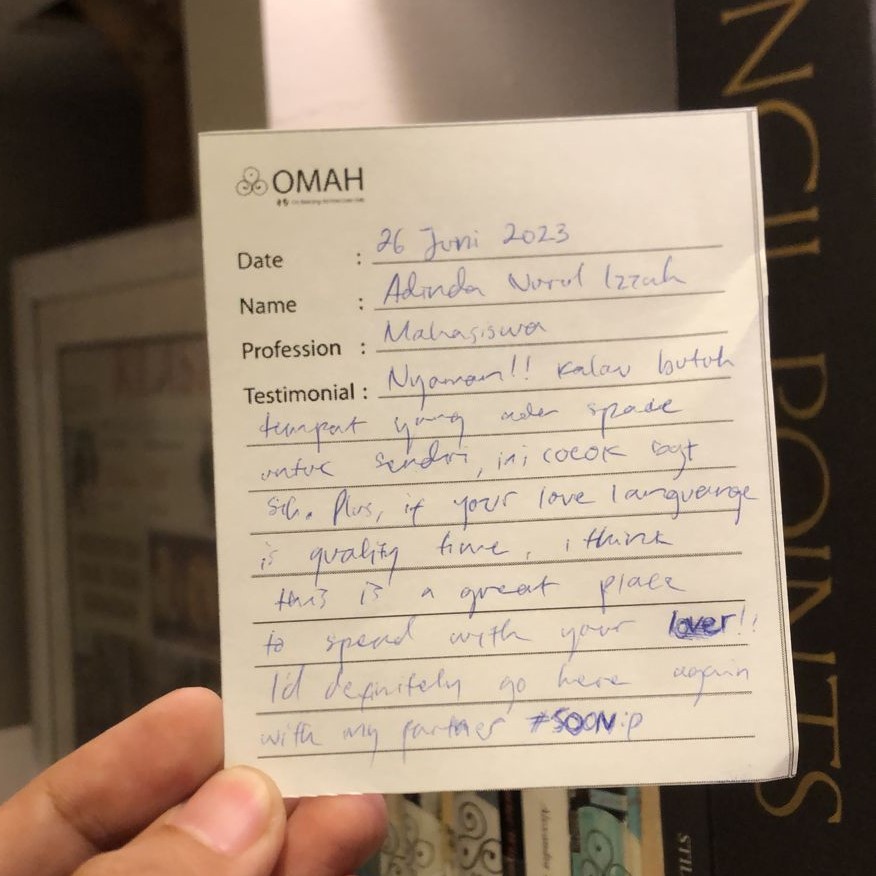 OMAH
Date : 26 Juni 2023
Name : Adinda Nurul Izzah
Profession : Mahasiswa
Testimonial : Nyaman!! Kalau butuh
tempat yang ada space
untuk sendiri, ini cocok bgt
sih. Plus, if your love languange
is quality time, i think
this is a great place
to spend with your lover!!
I'd definitely go here again
with my partner #SOON:p
NCH POINTS
STIL
Alexandra